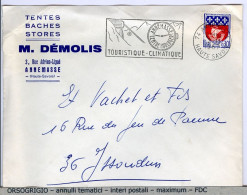 TENTES
BACHES
STORES
M. DÉMOLIS
2, Rue Adrien-Ligué
ANNEMASSE
(Haute-Savoie)
TOURISTIQUE-CLIMATIQUE
HAUTE SAVOIE
Ets Vachet et Fils
16 Rue du Jeu de Paume
36 Issoudun
ORSOGRIGIO – annulli tematici – interi postali – maximum – FDC